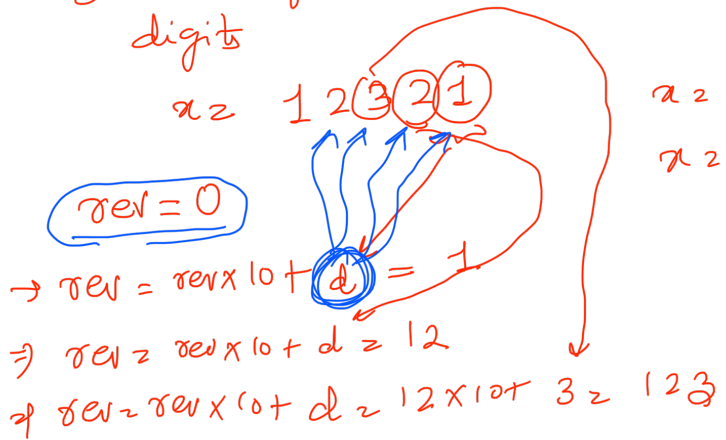 digits
x = 12321
x =
x =
rev = 0
→ rev = rev x 10 + d = 1
⇒ rev = rev x 10 + d = 12
⇒ rev = rev x 10 + d = 12 x 10 + 3 = 123